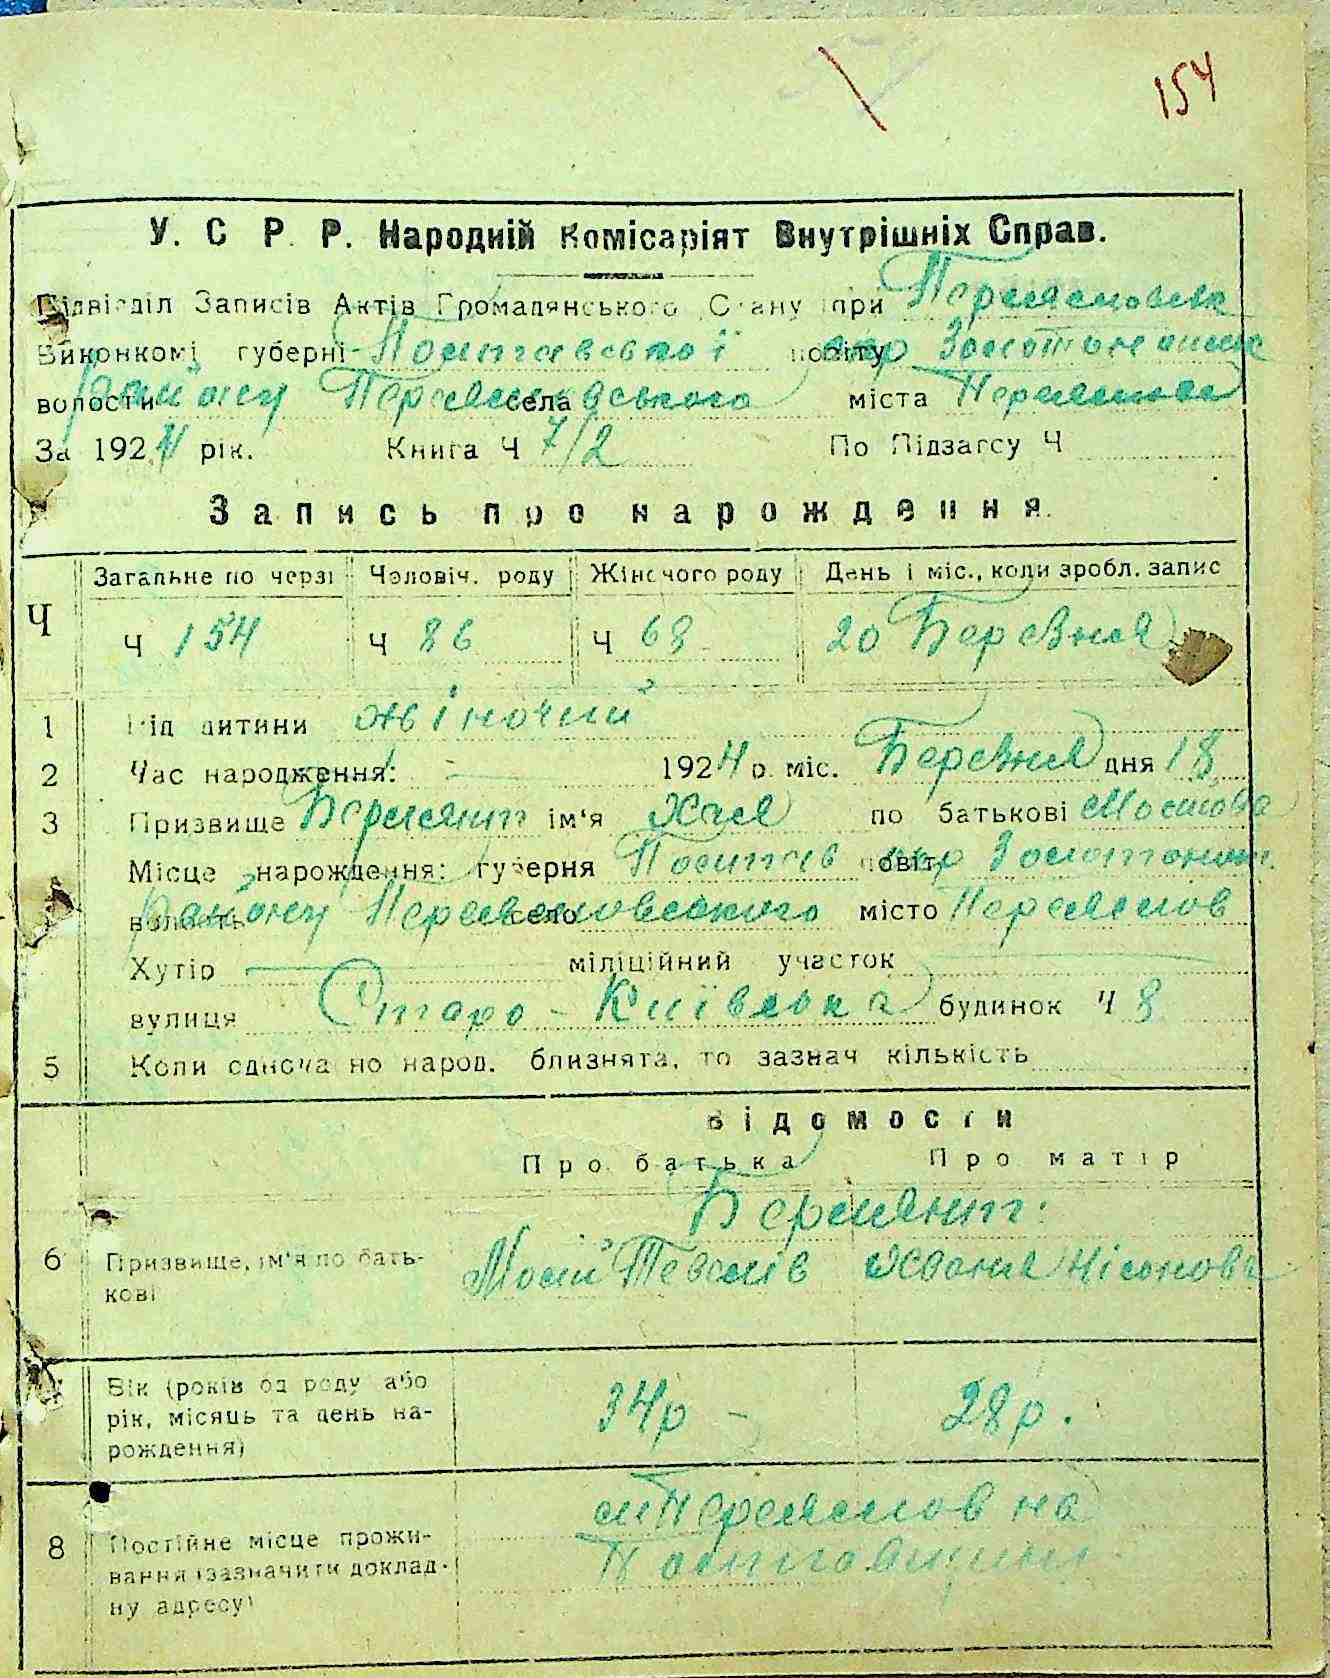 154
У. С. Р. Р. Народній Комісаріят Внутрішніх Справ.
Підвідділ Записів Актів Громадянського Стану при Переяславськ
Виконкомі губерні Полтавської повіту окр Золотоніськ
волости району Переяславського села міста Переяслова
За 1924 рік. Книга Ч 7/2 По Підзагсу Ч
Запись про нарождення.
Загальне по черзі Чоловіч. роду Жіночого роду День і міс., коли зробл. запис
Ч Ч 154 Ч 86 Ч 68 20 Березня
1 Рід дитини жіночий
2 Час народження: 1924 р. міс. Березня дня 18
3 Призвище ім'я Хая по батькові
Місце нарождення: губерня Полтав повіт окр Золотоніш.
волость Району Переясловського село місто Переяслов
Хутір міліційний участок
вулиця Старо-Київська будинок Ч 8
5 Коли одночасно народ. близнята, то зазнач кількість
Відомости
Про батька Про матір
6 Призвище, ім'я по бать-
кові
Вік (років од роду або 34р - 28р.
рік, місяць та день на-
рождення)
м Переяслов на
8 Постійне місце прожи- Полтавщині
вання (зазначити доклад-
ну адресу)